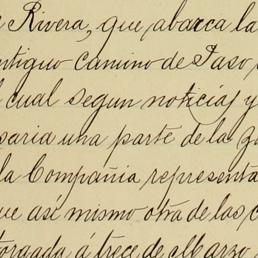 Rivera, que abarca la
ntiguo camino de Paso
cual segun noticias y
saria una parte de la
la Compañia representa
ue así mismo otra de las
torgada á trece de Marzo